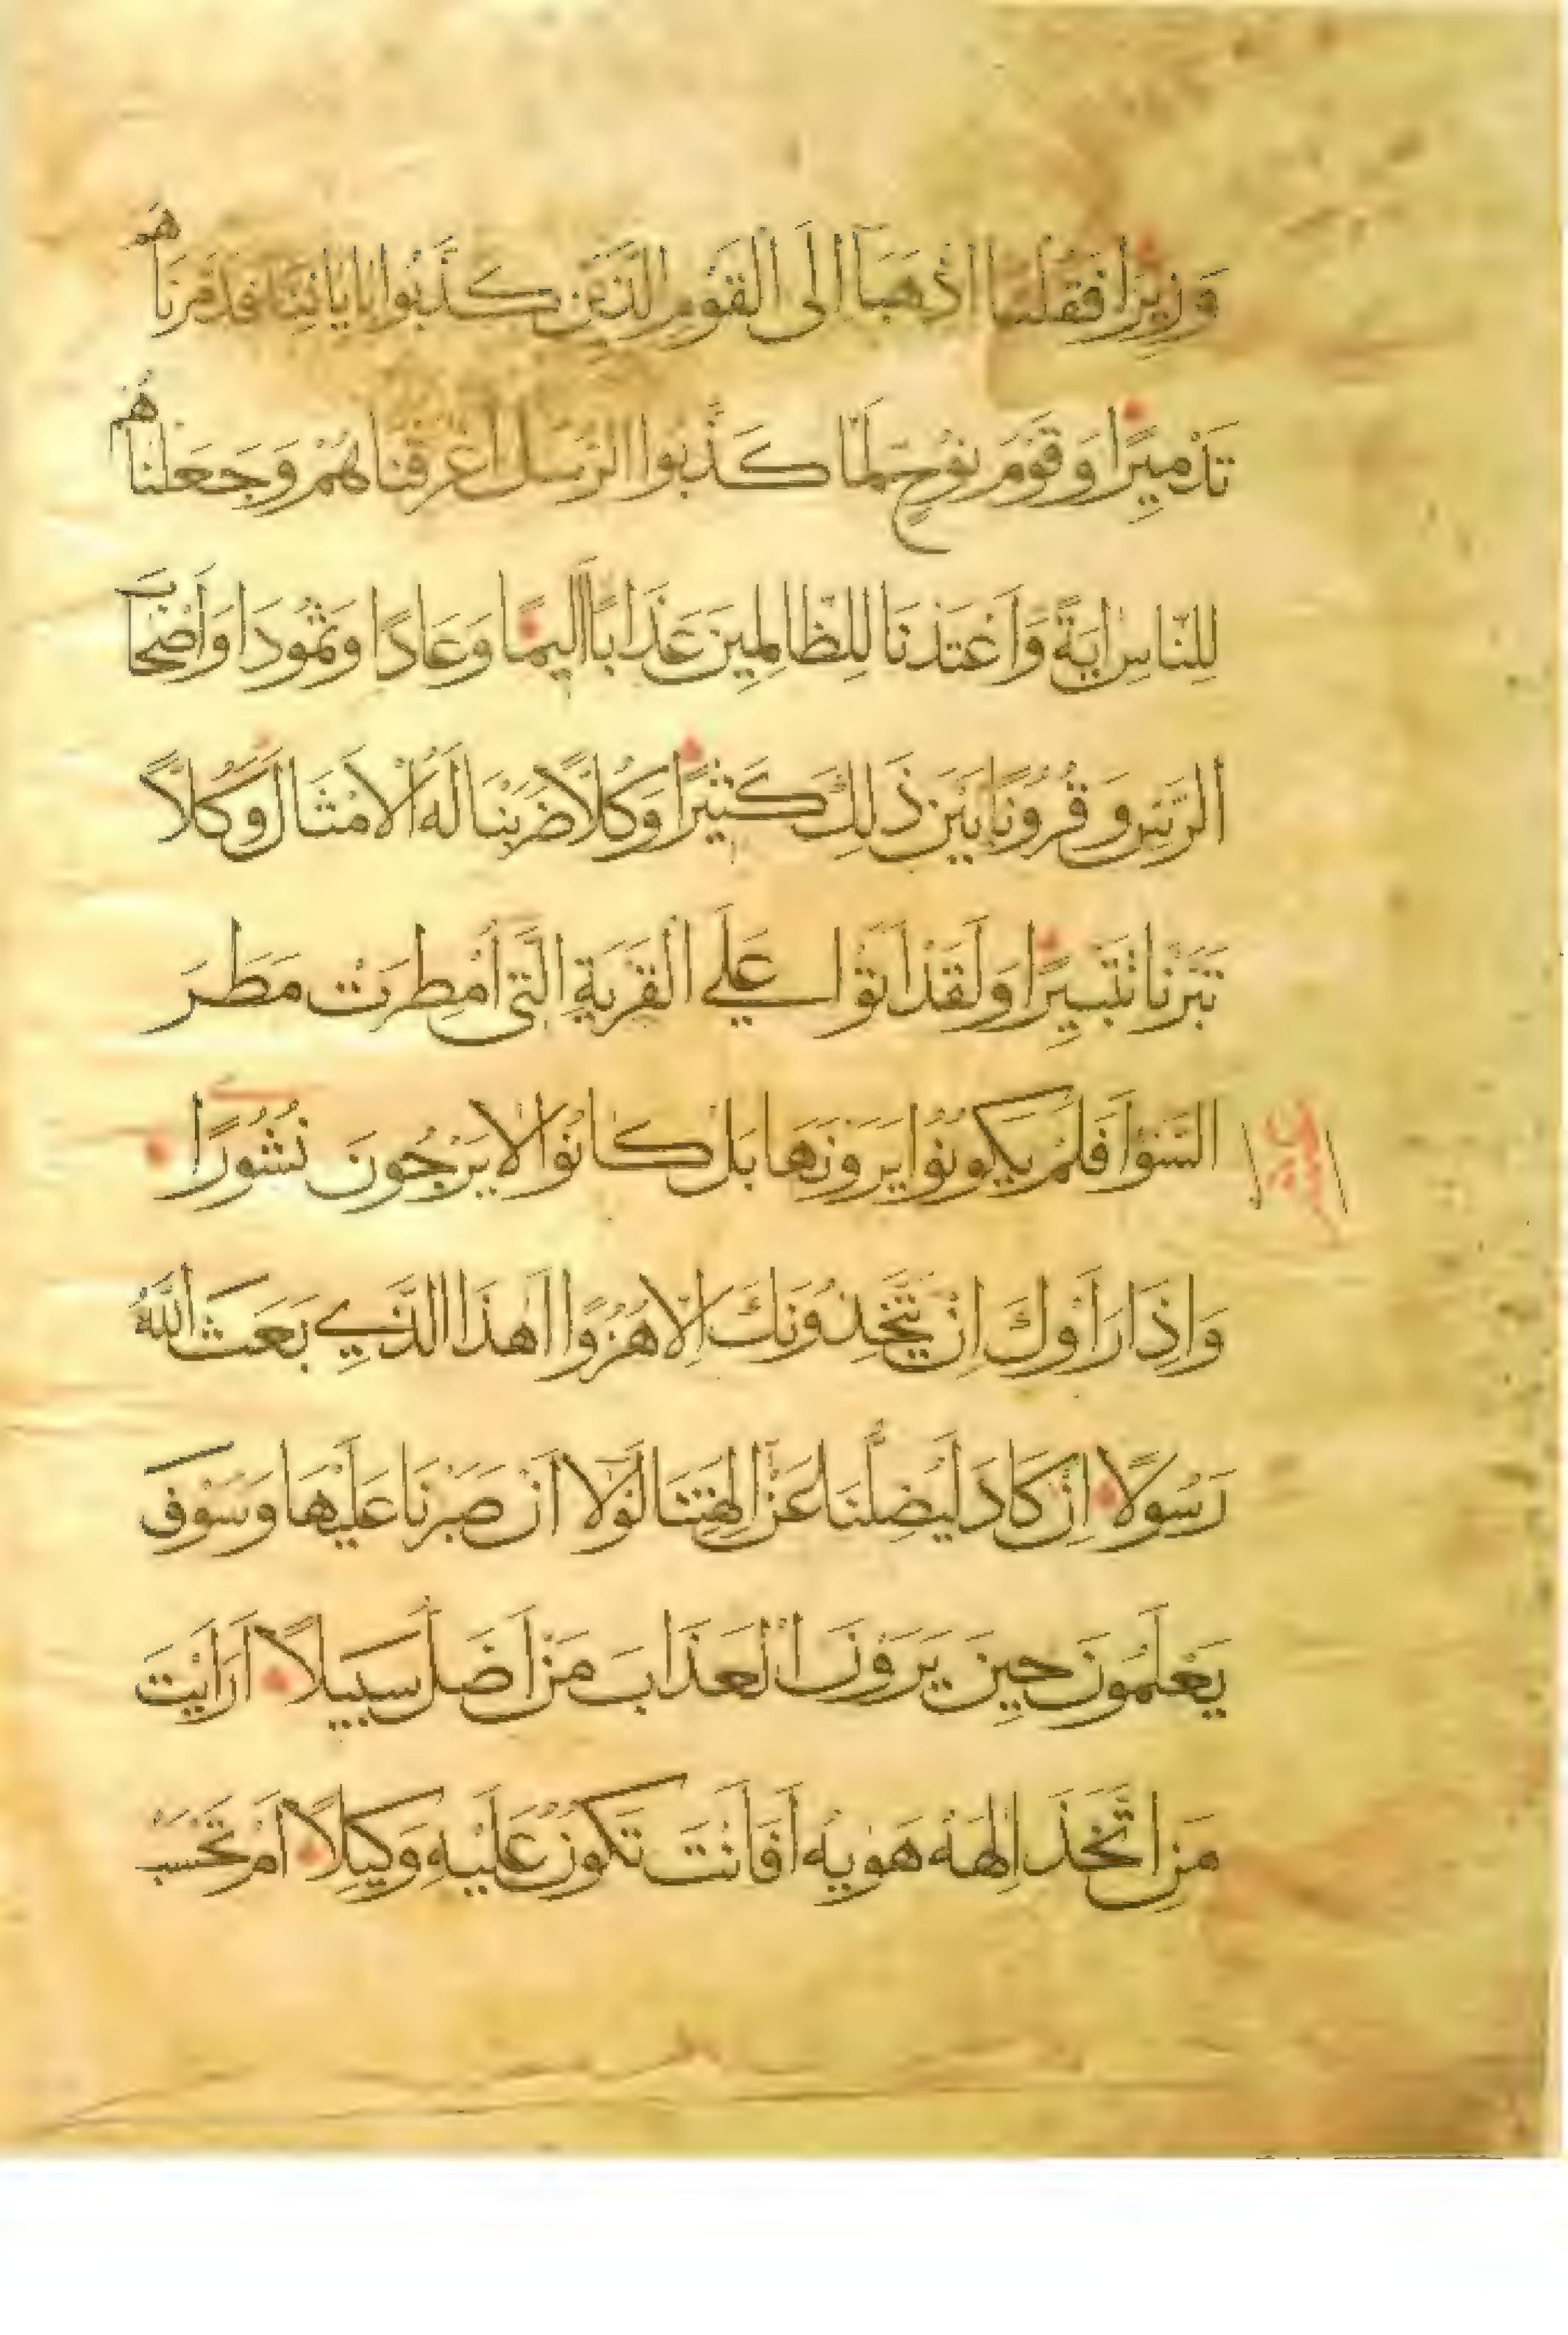 وَزِيرًا فَقُلْنَا اذْهَبَا إِلَى الْقَوْمِ الَّذِينَ كَذَّبُوا بِايَاتِنَا فَدَمَّرْنَاهُمْ
تَدْمِيرًا وَقَوْمَ نُوحٍ لَمَّا كَذَّبُوا الرُّسُلَ اَغْرَقْنَاهُمْ وَجَعَلْنَاهُمْ
لِلنَّاسِ ايَةً وَاَعْتَدْنَا لِلظَّالِمِينَ عَذَابًا اَلِيمًا وَعَادًا وَثَمُودَا وَاَصْحَابَ
الرَّسِّ وَقُرُونًا بَيْنَ ذَلِكَ كَثِيرًا وَكُلًّا ضَرَبْنَا لَهُ الْاَمْثَالَ وَكُلًّا
تَبَّرْنَا تَتْبِيرًا وَلَقَدْ اَتَوْا عَلَى الْقَرْيَةِ الَّتِي اُمْطِرَتْ مَطَرَ
السَّوْءِ اَفَلَمْ يَكُونُوا يَرَوْنَهَا بَلْ كَانُوا لَا يَرْجُونَ نُشُورًا
وَاِذَا رَاَوْكَ اِنْ يَتَّخِذُونَكَ اِلَّا هُزُوًا اَهَذَا الَّذِي بَعَثَ اللَّهُ
رَسُولًا اِنْ كَادَ لَيُضِلُّنَا عَنْ الِهَتِنَا لَوْلَا اَنْ صَبَرْنَا عَلَيْهَا وَسَوْفَ
يَعْلَمُونَ حِينَ يَرَوْنَ الْعَذَابَ مَنْ اَضَلُّ سَبِيلًا اَرَاَيْتَ
مَنِ اتَّخَذَ اِلَهَهُ هَوٰيهُ اَفَاَنْتَ تَكُونُ عَلَيْهِ وَكِيلًا اَمْ تَحْسَبُ